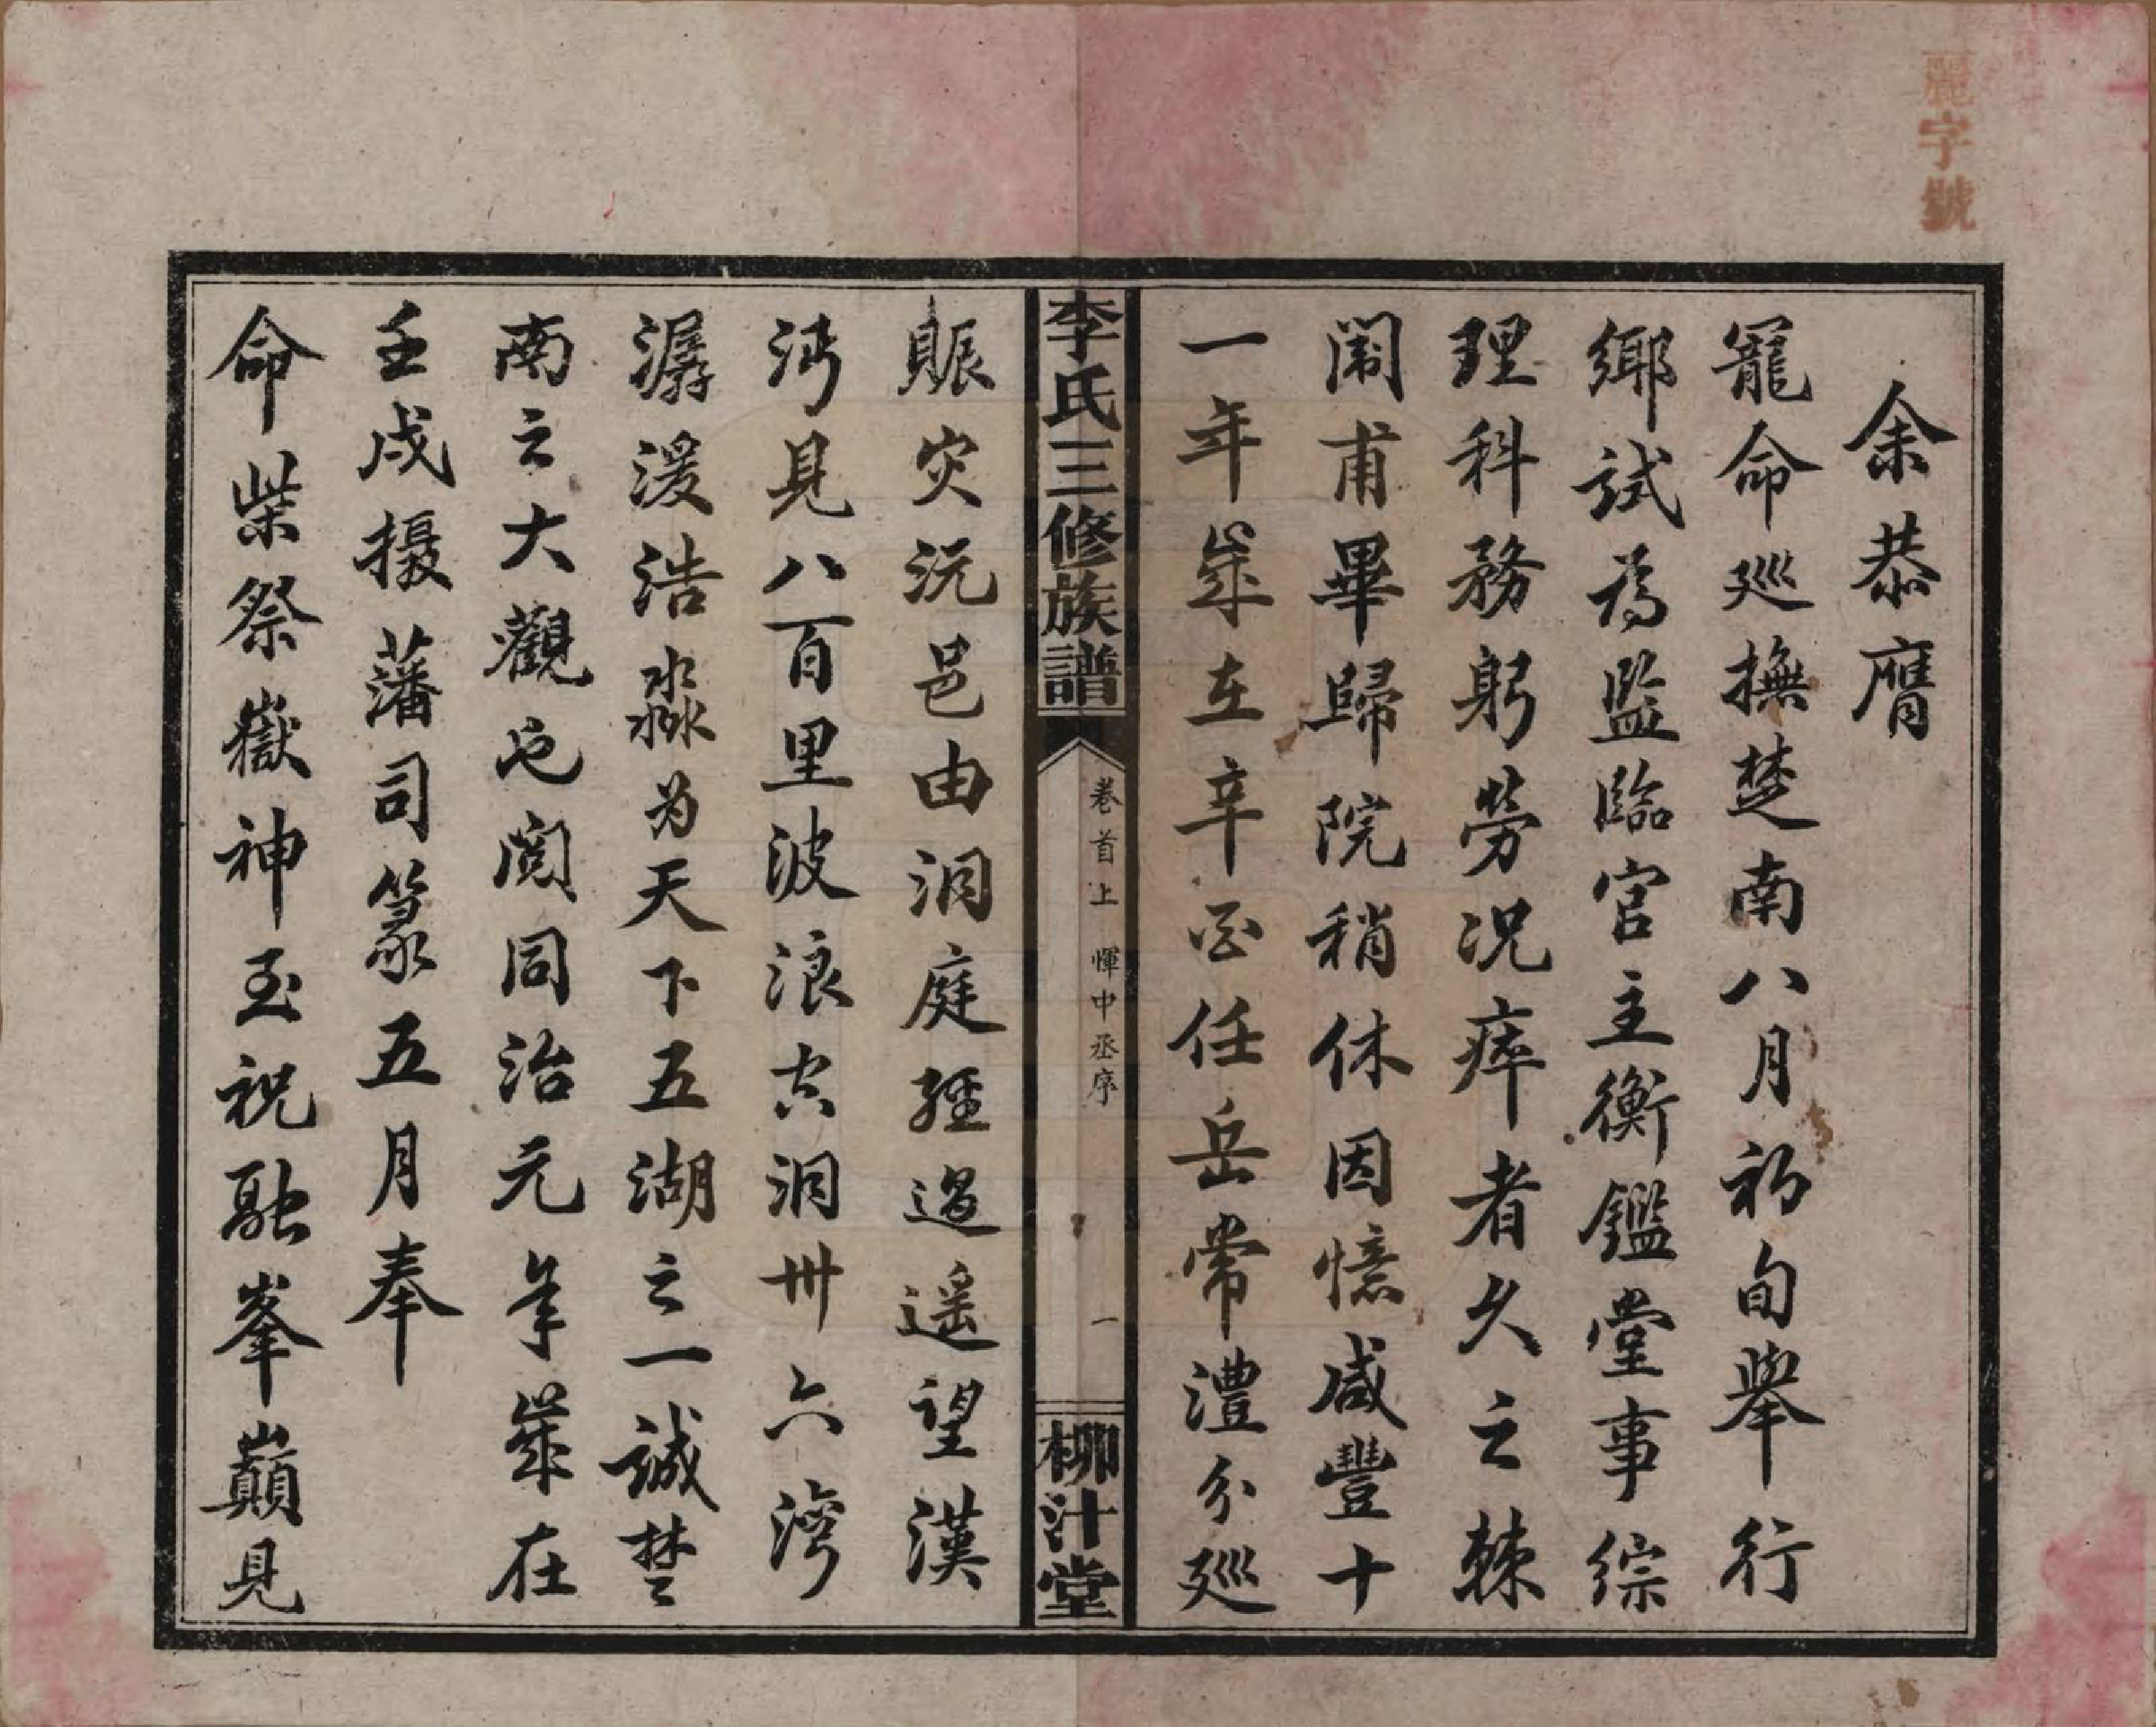 麗字號
余恭膺
寵命巡撫楚南八月初旬舉行
鄉試為監臨官主衡鑑堂事綜
理科務躬勞況瘁者久之棘
闈甫畢歸院稍休因憶咸豐十
一年歲在辛酉任岳常澧分巡
李氏三修族譜
卷首上 惲中丞序
一
柳汁堂
賑灾沅邑由洞庭經過遥望漢
沔見八百里波浪空洞卅六灣
潺湲浩淼为天下五湖之一誠楚
南之大觀也閱同治元年歲在
壬戌摄藩司篆五月奉
命柴祭嶽神至祝融峯巔見